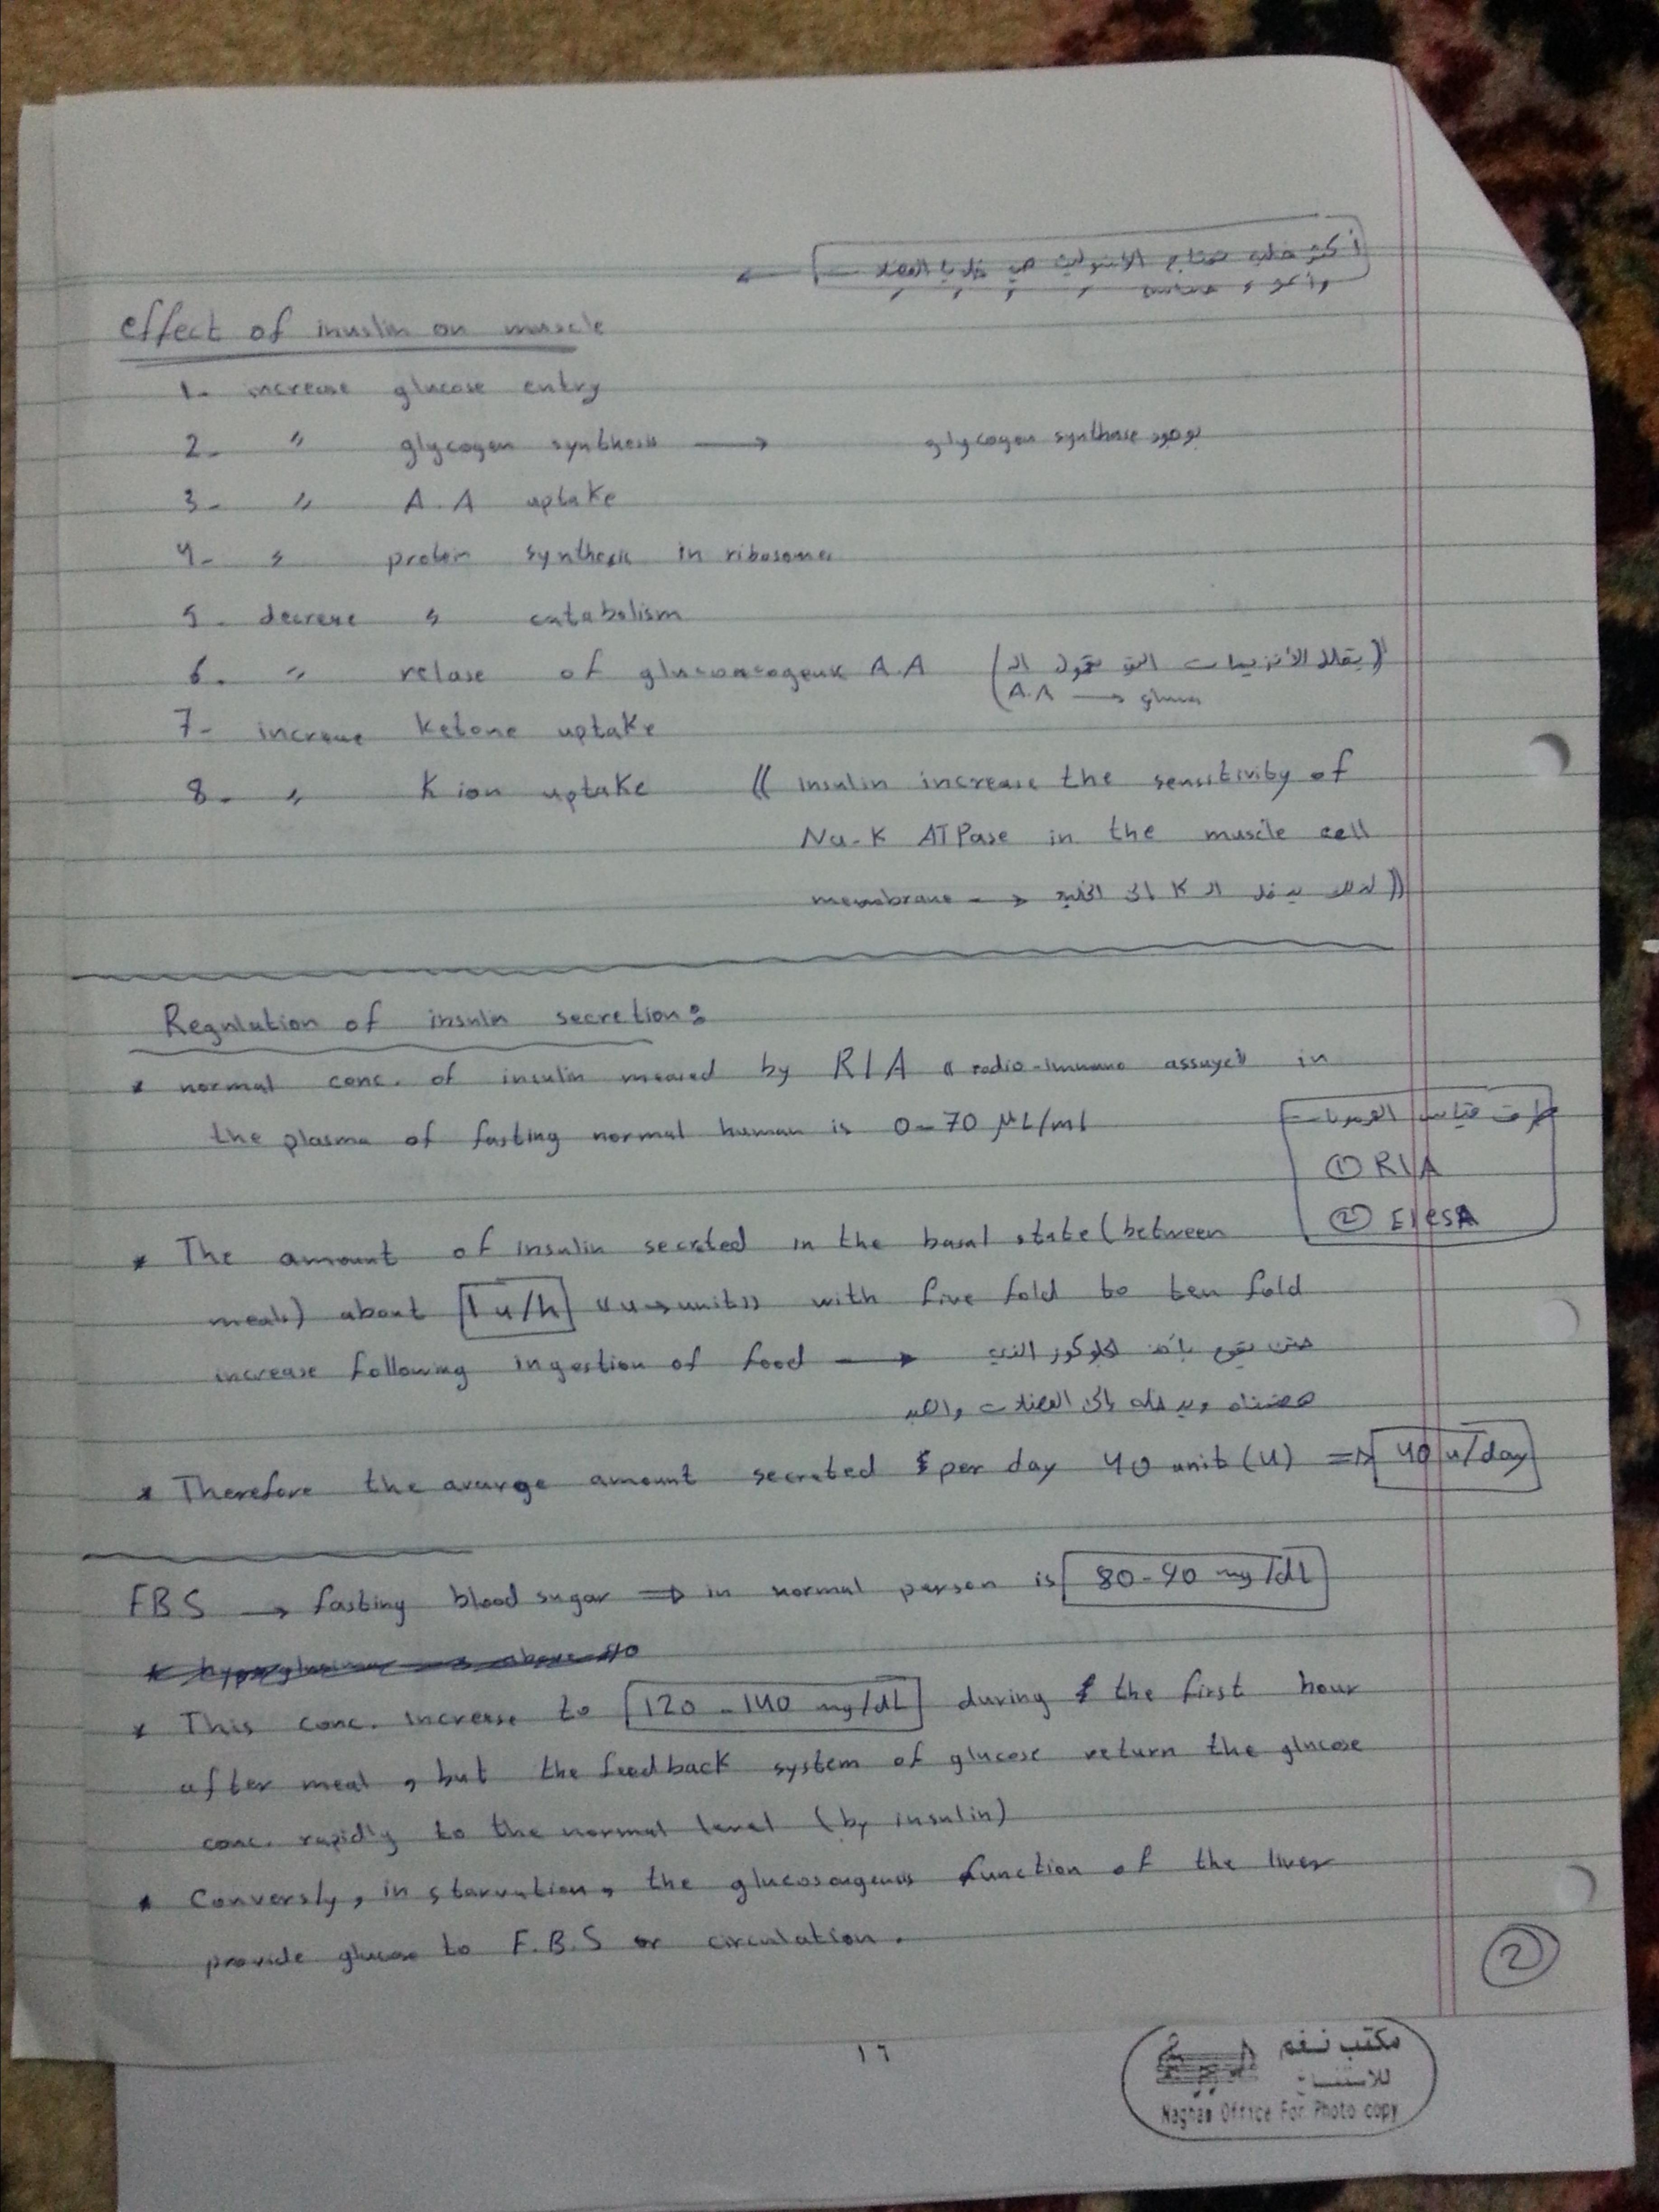 أكثر خلايا تحتاج الانسولين هي خلايا العضلات
effect of inuslin on muscle
1- increase glucose entry
2- " glycogen synthesis → glycogen synthase بوجود
3- " A.A uptake
4- " protein synthesis in ribosomes
5- decrease " catabolism
6. " relase of gluconeogenic A.A (يقلل الأنزيمات التي تحول الـ))
A.A → glucose
7- increase ketone uptake
8- " K ion uptake (( insulin increase the sensitivity of
Na-K ATPase in the muscle cell
membrane → لذلك يدخل الـ K الى الخلية ))
Regulation of insulin secretion:
* normal conc. of insulin measured by RIA (( radio-immuno assaye)) in
the plasma of fasting normal human is 0-70 μL/ml
طرق قياس الهرمونات
① RIA
② ElesA
* The amount of insulin secreted in the basal state (between
meals) about 1 u/h ((u→unit)) with five fold to ten fold
increase following ingestion of food → حتى يقوم بأخذ الجلوكوز الذي
هضمناه ويدخله إلى العضلات والكبد
* Therefore the avarge amount secreted per day 40 unit (U) ⇒ 40 u/day
FBS → fasting blood sugar ⇒ in normal person is 80-90 mg/dL
* This conc. increase to 120-140 mg/dL during the first hour
after meal, but the feedback system of glucose return the glucose
conc. rapidly to the normal level (by insulin)
* Conversly, in starvation, the function of the liver
provide glucose to F.B.S or circulation.
②
١٦
مكتب نغم
للاستنساخ
Nagham Office For Photo copy